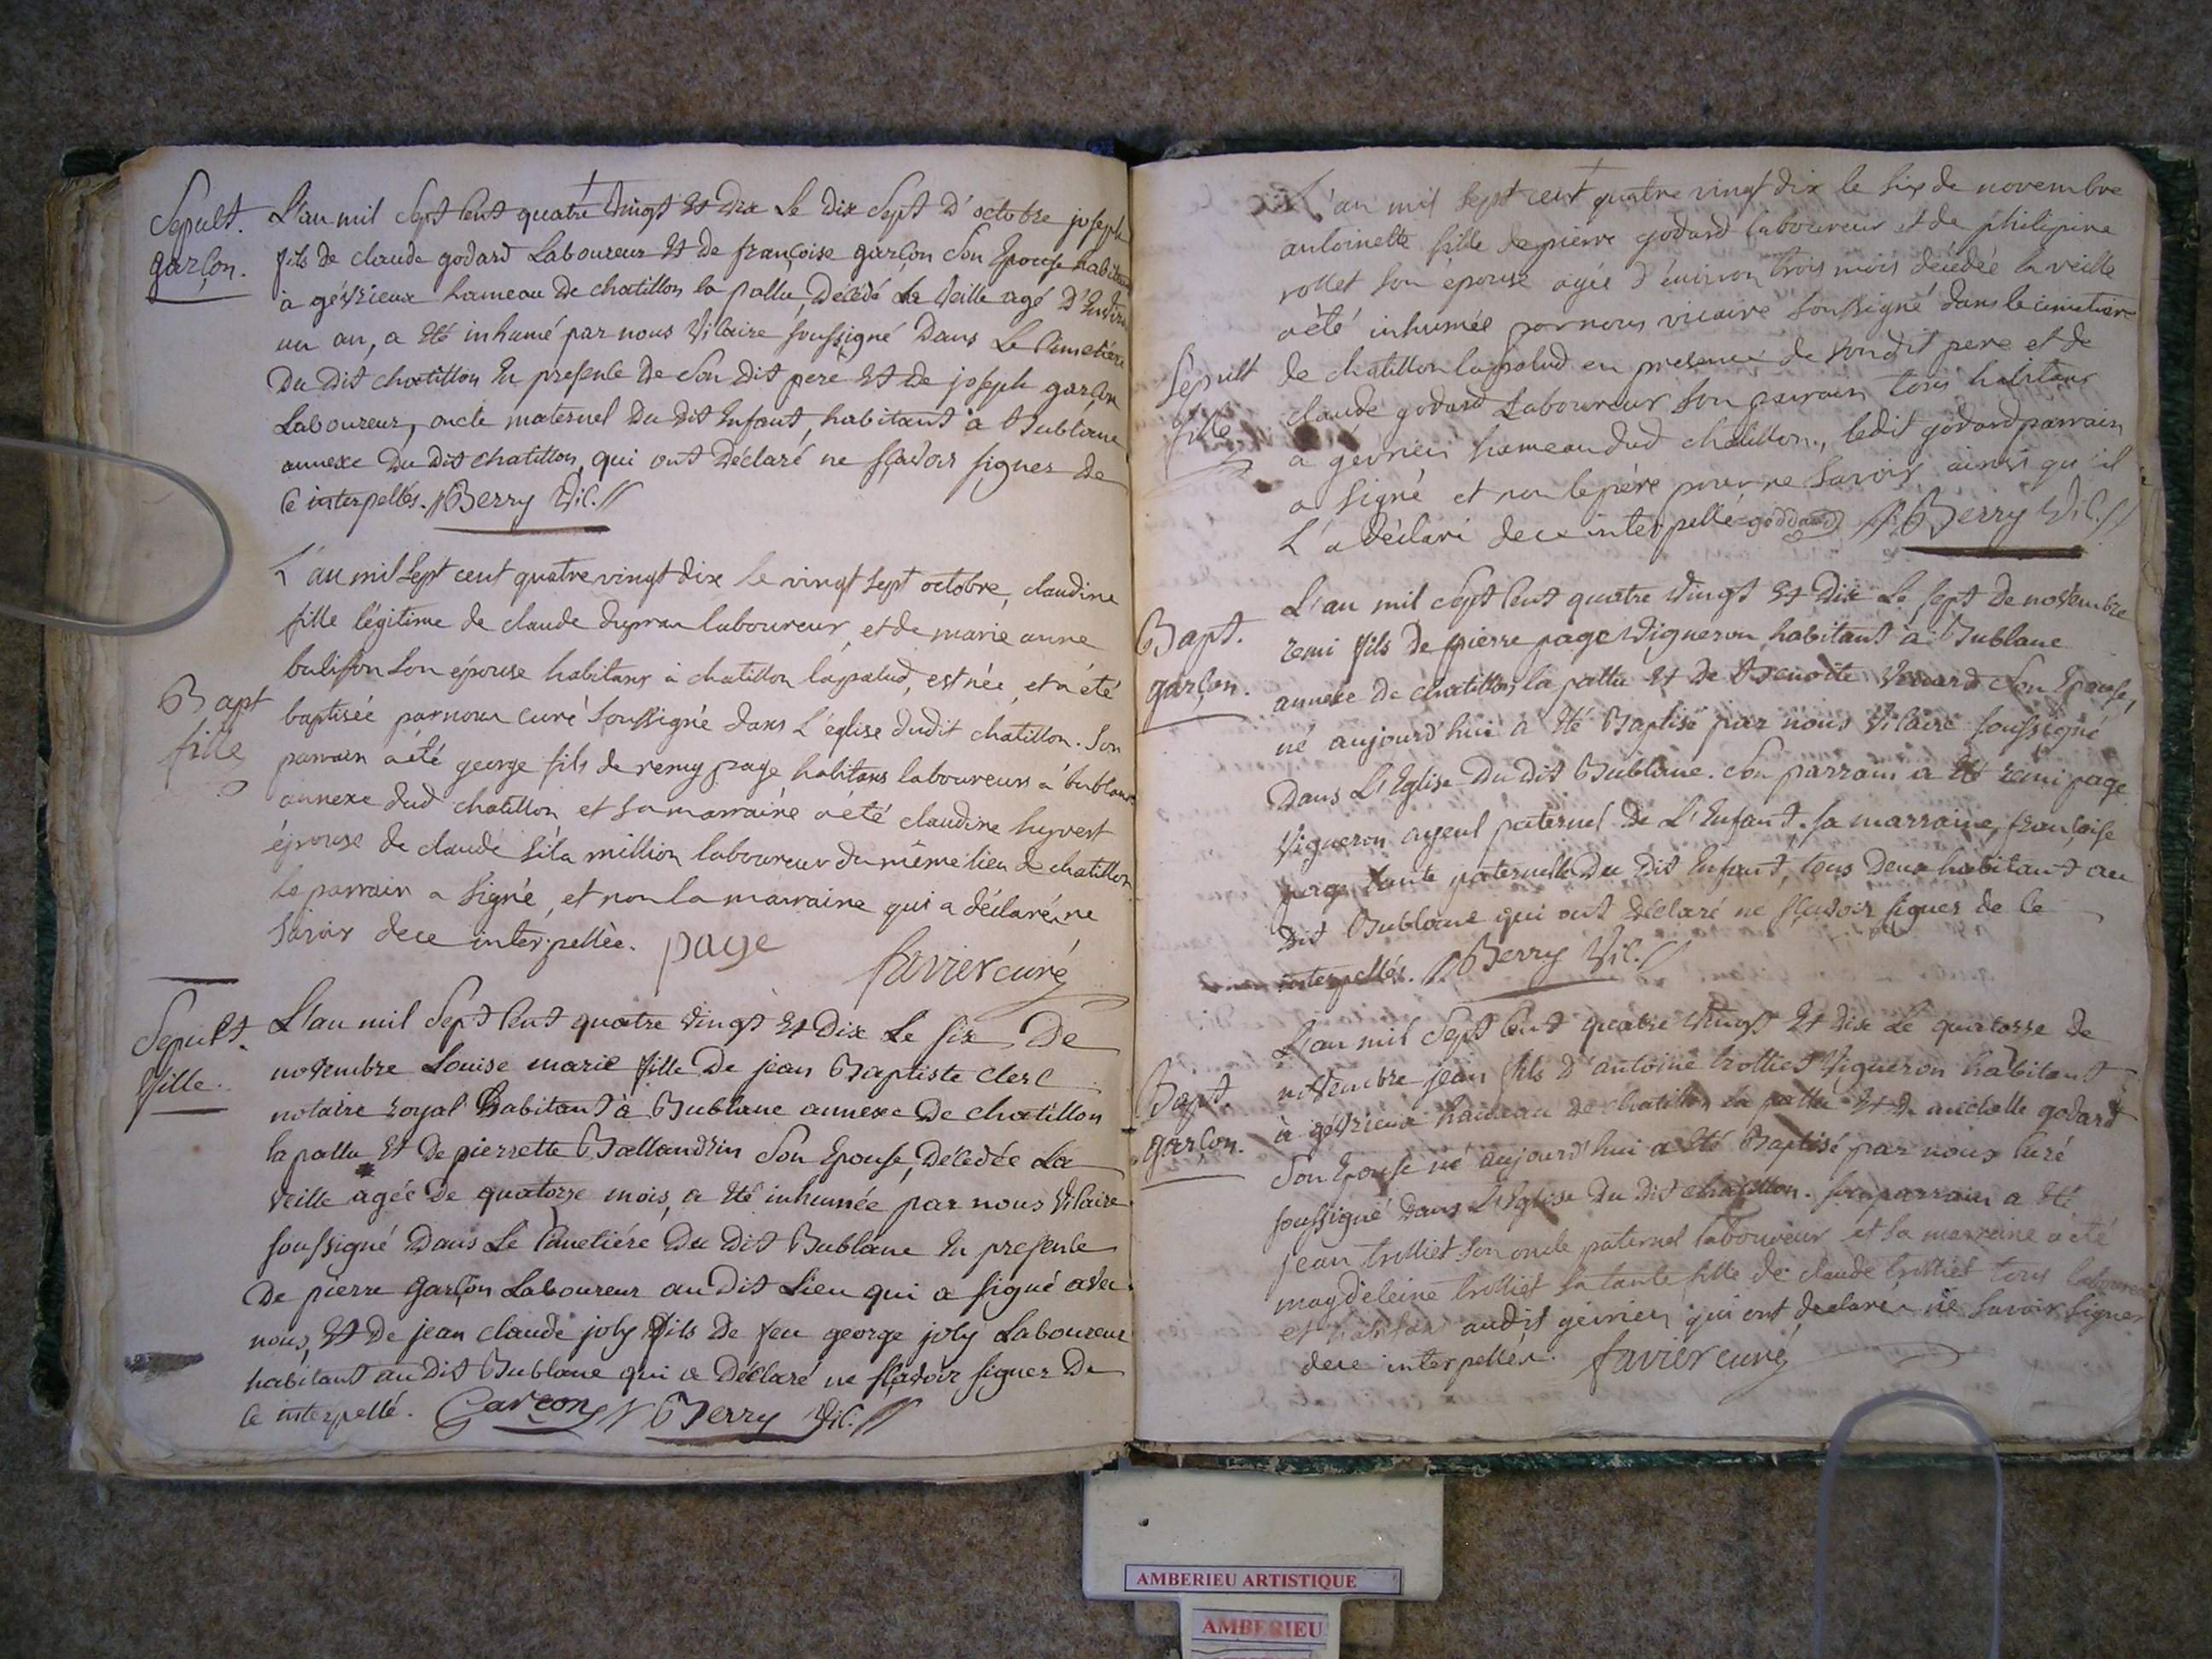 Sepult.
garçon.
L'an mil sept cent quatre vingt et dix le dix sept d'octobre joseph
fils de claude godard Laboureur et de françoise garçon son Epouse habitans
à gévrieux hameau de chatillon la pallu, décédé la veille agé d'Environ
un an, a été inhumé par nous Vicaire soussigné dans Le Cimetière
du dit chatillon En presence de son dit pere et de joseph garçon
Laboureur, oncle maternel du dit Enfant, habitant à Bublane
annexe du dit chatillon, qui ont déclaré ne sçavoir signer de
ce interpellés. Berry Vic.
Bapt
fille
L'an mil sept cent quatre vingt dix le vingt sept octobre, claudine
fille légitime de claude laboureur et de marie anne
son épouse habitans à chatillon lapalud, est née, et a été
baptisée par nous curé soussigné dans L'église dudit chatillon. Son
parrain a été george fils de remy page habitans laboureurs à bublane
annexe dud chatillon et sa marraine a été claudine huyvert
épouse de claude million laboureur du même lieu de chatillon
le parrain a signé, et non la marraine qui a déclaré ne
savoir de ce interpellée. page
favier curé
Sepult.
fille.
L'an mil sept cent quatre vingt et dix Le six De
novembre Louise marie fille De jean Baptiste clerc
notaire royal habitant à Bublane annexe De chatillon
la pallu et De pierrette Ballandrin son Epouse, décédée La
veille agée De quatorze mois, a été inhumée par nous Vicaire
soussigné Dans Le Cimetière Du Dit Bublane En presence
De pierre garçon Laboureur au Dit Lieu qui a signé avec
nous, et De jean claude joly fils De feu george joly Laboureur
habitant au Dit Bublane qui a Déclaré ne sçavoir signer De
ce interpellé. Garçon Berry Vic.
Sepult
fille
L'an mil sept cent quatre vingt dix le six de novembre
antoinette fille de pierre godard laboureur et de philipine
rollet son épouse agée d'environ trois mois décédée la veille
a été inhumée par nous vicaire soussigné dans le cimetiere
de chatillon lapalud en presence de sondit pere et de
claude godard Laboureur son parrain tous habitans
a gevrieu hameau dud chatillon, ledit godard parrain
a signé et non le père pour ne savoir ainsi qu'il
L'a déclaré de ce interpellé goddard Berry Vic.
Bapt.
garçon.
L'an mil sept cent quatre vingt et Dix Le sept De novembre
remi fils De pierre page Vigneron habitant à Bublane
annexe De chatillon la pallu et De Benoite son Epouse,
né aujourd'hui a été Baptisé par nous Vicaire soussigné
Dans L'Eglise Du Dit Bublane. Son parrain a été remi page
Vigneron ayeul paternel De L'Enfant, sa marraine, françoise
page tante paternelle Du Dit Enfant, tous Deux habitant au
Dit Bublane qui ont Déclaré ne sçavoir signer de ce
interpellés. Berry Vic.
Bapt.
garçon.
L'an mil sept cent quatre vingt et dix Le quatorze de
novembre jean fils D'antoine trolliet Vigneron habitant
à gévrieux hameau de chatillon la pallu et de michelle godard
Son Epouse né aujourd'hui a été Baptisé par nous Curé
soussigné Dans L'Eglise Du Dit chatillon. son parrain a été
jean trolliet son oncle paternel laboureur et sa marraine a été
magdeleine trolliet sa tante fille de claude trolliet tous
et audit gévrieu qui ont declaré ne savoir signer
de ce interpellés. favier curé
AMBERIEU ARTISTIQUE
AMBERIEU